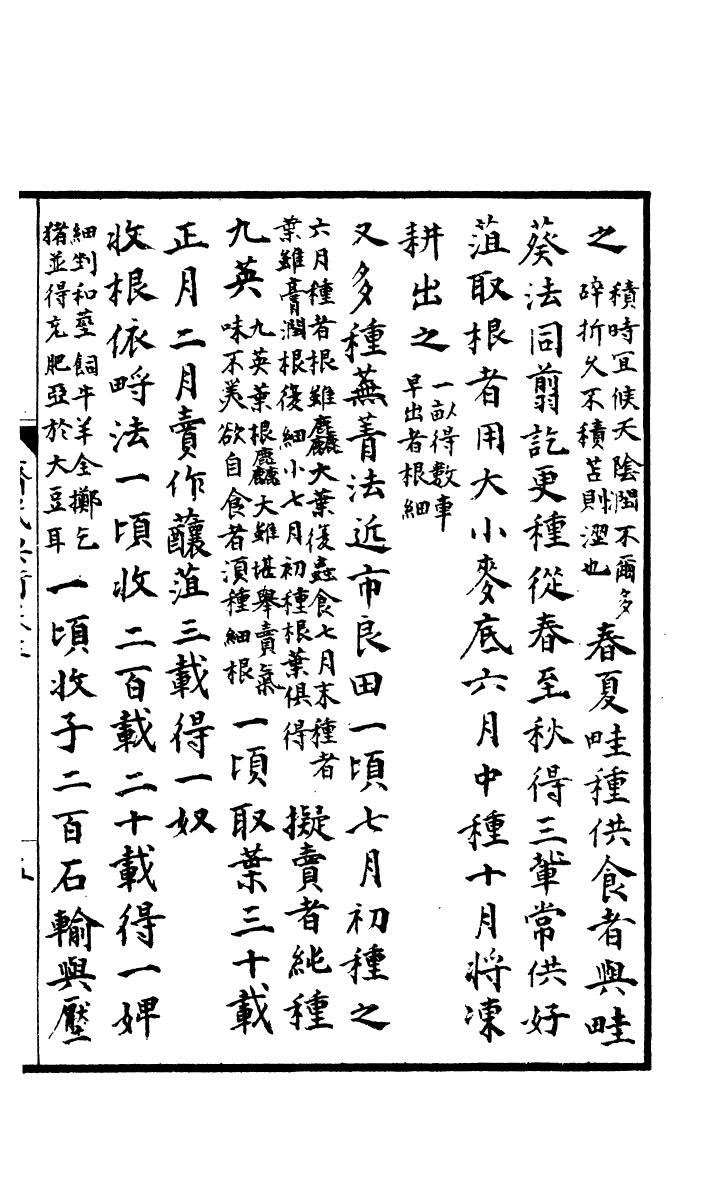 之積時宜候天陰潤不爾多碎折久不積苫則澀也春夏畦種供食者與畦
葵法同翦訖更種從春至秋得三輩常供好
菹取根者用大小麥底六月中種十月將凍
耕出之一畝得數車早出者根細
又多種蕪菁法近市良田一頃七月初種之
六月種者根雖麤大葉復蟲食七月末種者葉雖膏潤根復細小七月初種根葉俱得擬賣者純種
九英九英葉根麤大雖堪舉賣氣味不美欲自食者須種細根一頃取葉三十載
正月二月賣作釀菹三載得一奴
收根依畤法一頃收二百載二十載得一婢
細剉和莖飼牛羊全擲乞猪並得充肥亞於大豆耳一頃收子二百石輸與壓